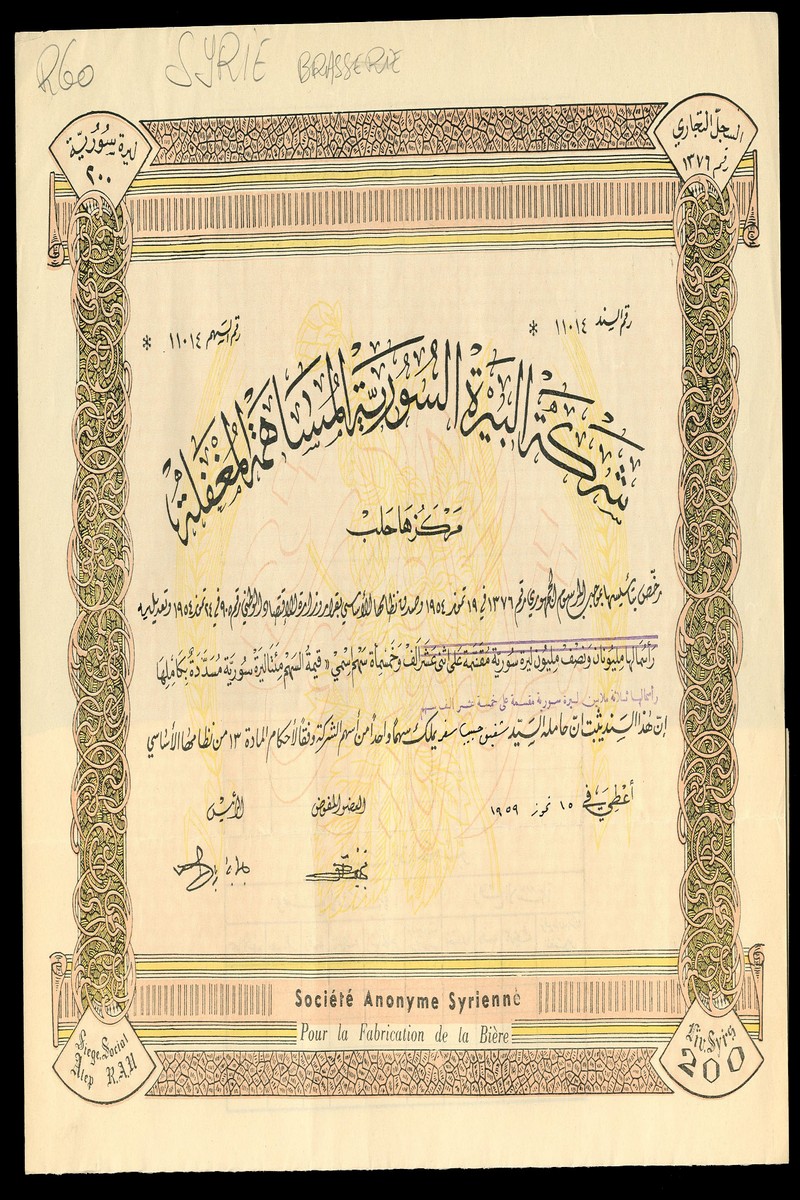 R60 SYRIE BRASSERIE
السجل التجاري
رقم ١٣٧٦
ليرة سورية
٢٠٠
رقم السند ١١٠١٤ *
رقم السهم ١١٠١٤ *
شركة البيرة السورية المساهمة المغفلة
مركزها حلب
رخص بتأسيسها بموجب المرسوم الجمهوري رقم ١٣٧٦ في ١٩ تموز ١٩٥٤ وصدق نظامها الأساسي بقرار وزارة الاقتصاد الوطني رقم ٩٠٥ في ٢٤ تموز ١٩٥٤ وتعديله
رأسمالها مليونان ونصف مليون ليرة سورية مقسمة على اثني عشر ألف وخمسمأة سهم إسمي « قيمة السهم مئتا ليرة سورية مسددة بكاملها
رأسمالها ثلاثة ملايين ليرة سورية مقسمة على خمسة عشر الف سهم
إن هذا السند يثبت أن حامله السيد شفيق حبيب سفر يملك سهماً واحداً من أسهم الشركة وفقاً لأحكام المادة ١٣ من نظامها الأساسي
أعطي في ١٥ تموز ١٩٥٩
العضو المفوض
الرئيس
Société Anonyme Syrienne
Pour la Fabrication de la Bière
Siege Social
Alep R.A.U
Liv. Syrs
200